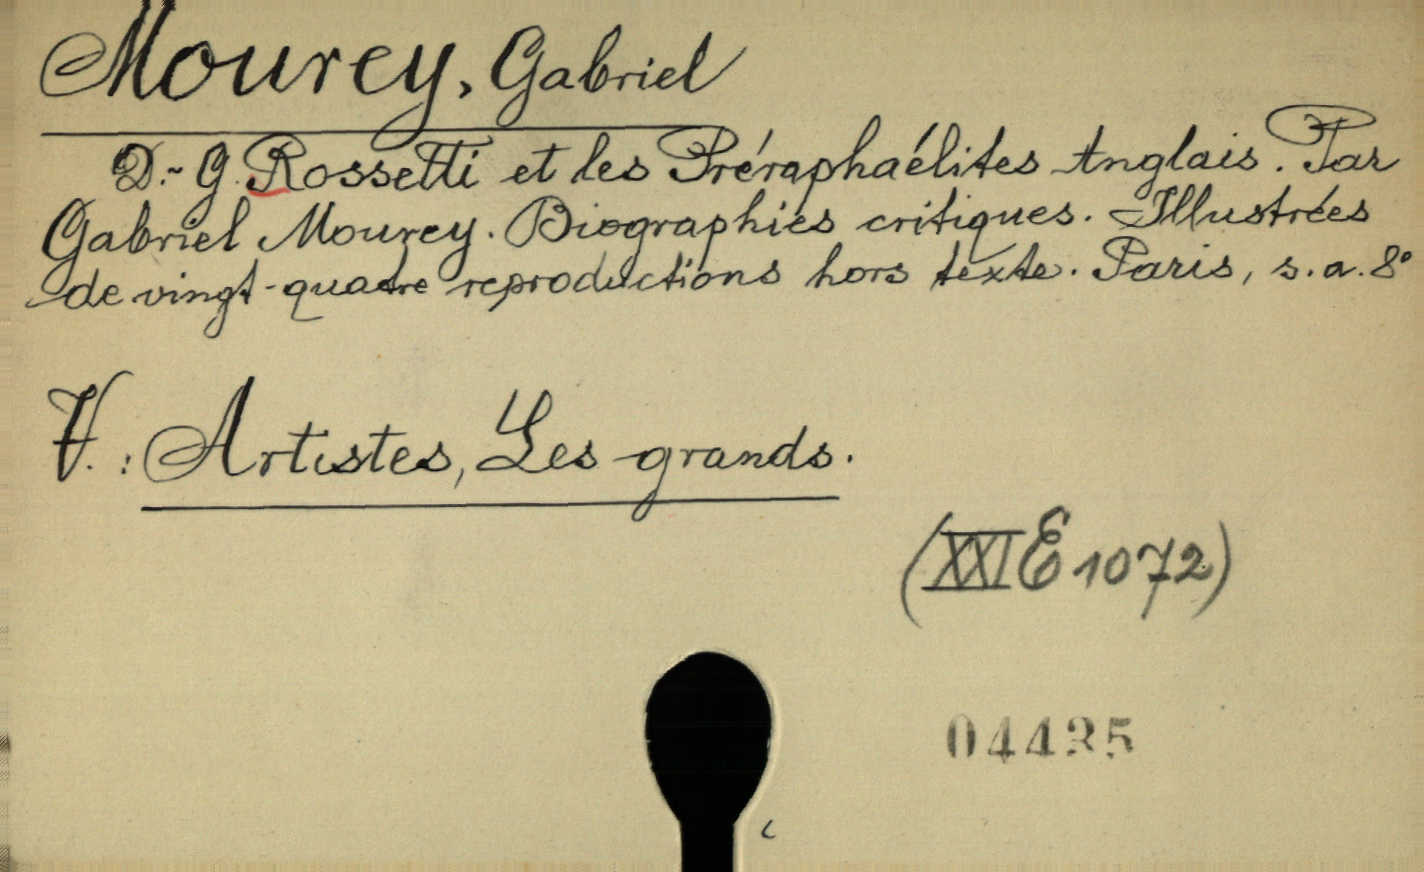 Mourey, Gabriel
D.-G. Rossetti et les Préraphaélites Anglais. Par
Gabriel Mourey. Biographies critiques. Illustrées
de vingt-quatre reproductions hors texte. Paris, s.a. 8°
V.: Artistes, Les grands.
(XXI E 1072)
04435